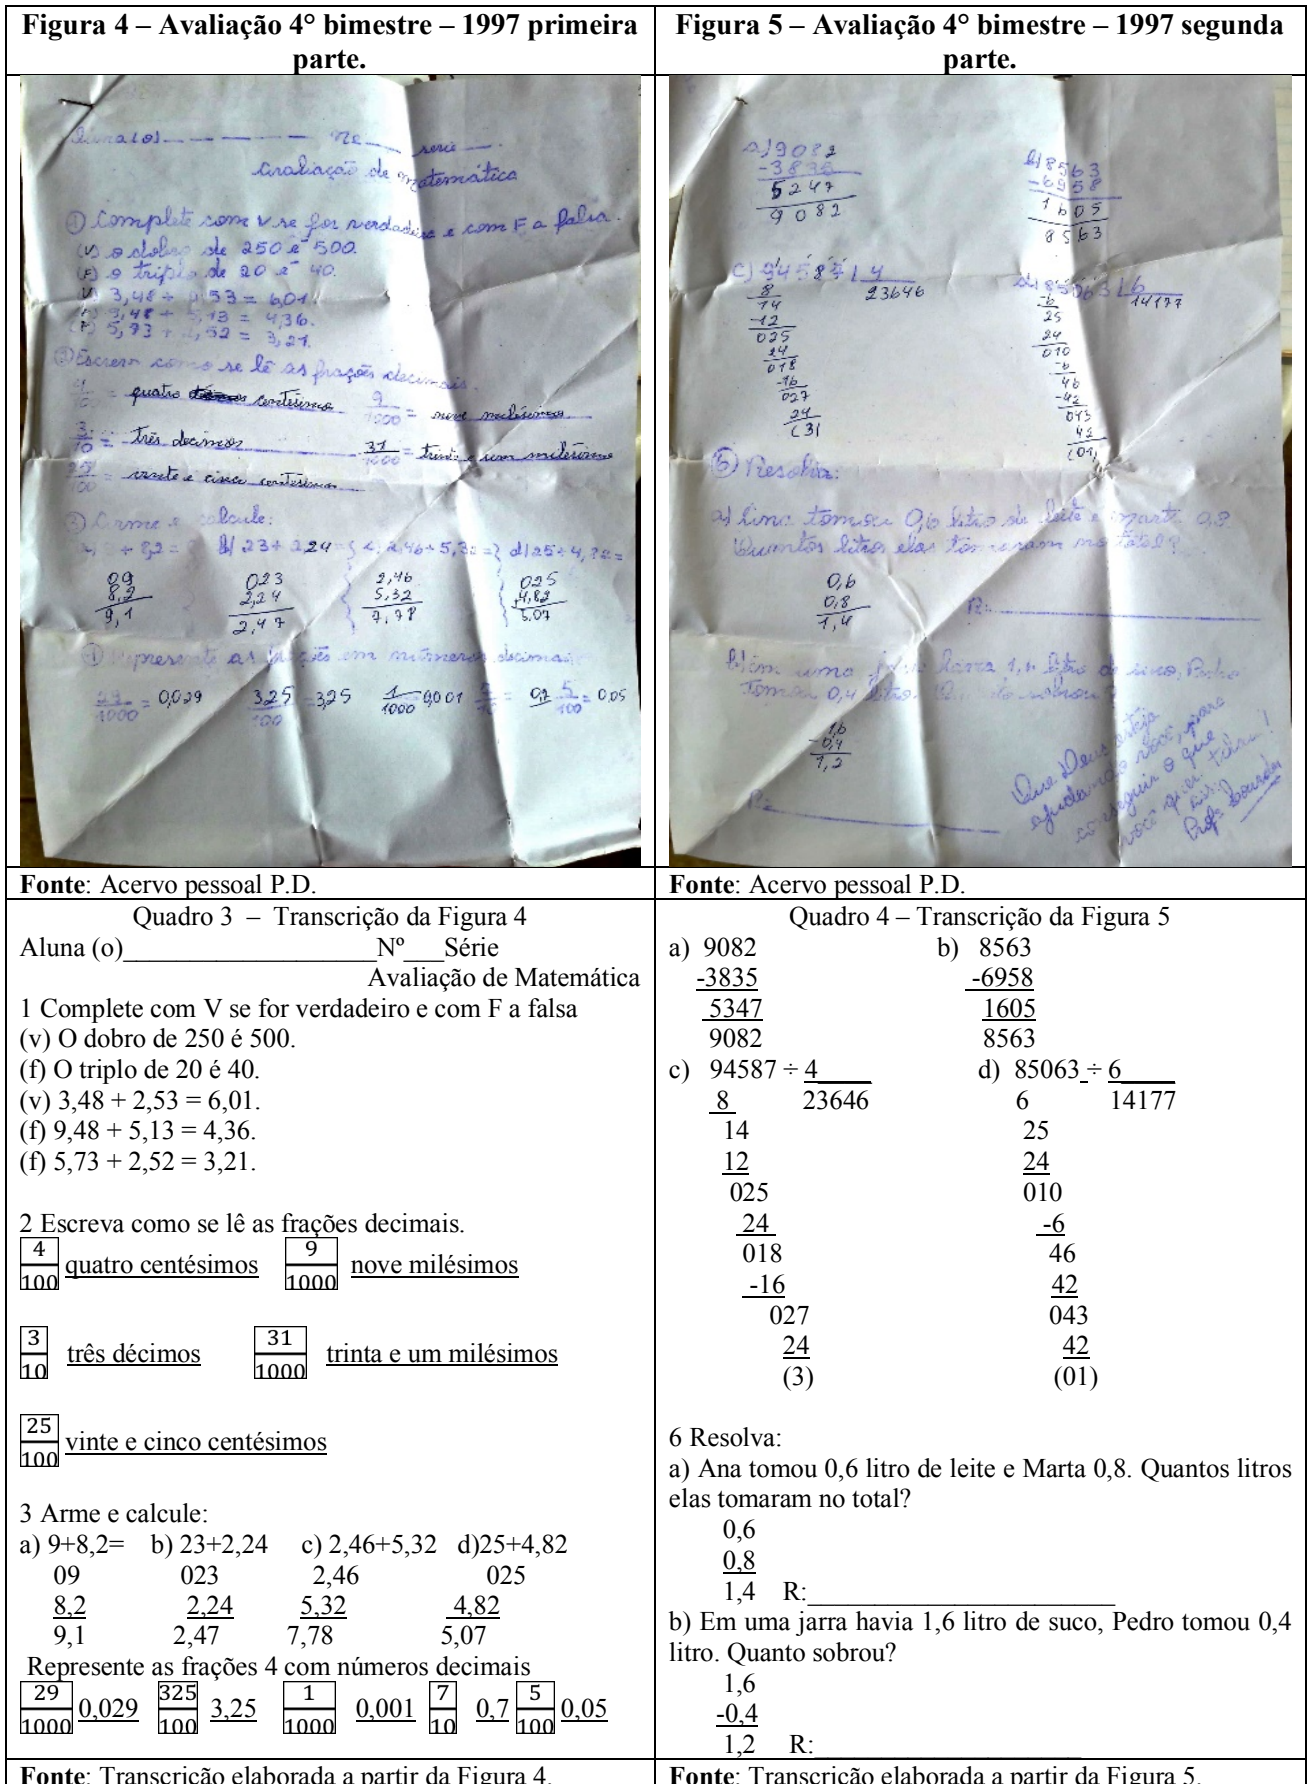 Figura 4 – Avaliação 4° bimestre – 1997 primeira
parte.
Aluna (o) Nº serie
Avaliação de matemática
① Complete com V se for verdadeiro e com F a falsa.
(V) o dobro de 250 é 500.
(F) o triplo de 20 é 40.
3,48 + 53 = 6,01
9,48 + 5,13 = 4,36.
5,73 + 2,52 = 3,21.
② Escreva como se lê as frações decimais.
4/100 = quatro centésimos 9/1000 = nove milésimos
3/10 = três decimos 31/1000 = trinta e um milésimos
25/100 = vinte e cinco centésimos
③ Arme e calcule:
+ 8,2 = b) 23+ 2,24 = c) 2,46+5,32 = d) 25+4,82=
09 023 2,46 025
8,2 2,24 5,32 4,82
9,1 2,47 7,78 5,07
④ Represente as frações em números decimais
29/1000 = 0,029 325/100 = 3,25 1/1000 0,001 7/10 = 0,7 5/100 = 0,05
Fonte: Acervo pessoal P.D.
Quadro 3 – Transcrição da Figura 4
Aluna (o)____________________Nº___Série
Avaliação de Matemática
1 Complete com V se for verdadeiro e com F a falsa
(v) O dobro de 250 é 500.
(f) O triplo de 20 é 40.
(v) 3,48 + 2,53 = 6,01.
(f) 9,48 + 5,13 = 4,36.
(f) 5,73 + 2,52 = 3,21.
2 Escreva como se lê as frações decimais.
4/100 quatro centésimos 9/1000 nove milésimos
3/10 três décimos 31/1000 trinta e um milésimos
25/100 vinte e cinco centésimos
3 Arme e calcule:
a) 9+8,2= b) 23+2,24 c) 2,46+5,32 d)25+4,82
09 023 2,46 025
8,2 2,24 5,32 4,82
9,1 2,47 7,78 5,07
Represente as frações 4 com números decimais
29/1000 0,029 325/100 3,25 1/1000 0,001 7/10 0,7 5/100 0,05
Fonte: Transcrição elaborada a partir da Figura 4.
Figura 5 – Avaliação 4° bimestre – 1997 segunda
parte.
a) 9082 b) 8563
-6958
5247 1605
9082 8563
c) 94587 4 d) 85063 6
8 23646 6 14177
14 25
-12 24
025 010
24 -6
018 46
-16 -42
027 043
24 42
(3) (01)
⑥ Resolva:
a) tomou 0,6 litro de leite e Marta 0,8.
Quantos litros elas tomaram no total?
0,6
0,8
1,4
R:
b) Em uma havia 1,6 litro de suco, Pedro
Tomou 0,4 litro. Quanto sobrou?
1,6
-0,4
1,2
R:
Que Deus esteja
ajudando você, para
conseguir o que
você quer
Profª Lourdes
Fonte: Acervo pessoal P.D.
Quadro 4 – Transcrição da Figura 5
a) 9082 b) 8563
-3835 -6958
5347 1605
9082 8563
c) 94587 ÷ 4 d) 85063 ÷ 6
8 23646 6 14177
14 25
12 24
025 010
24 -6
018 46
-16 42
027 043
24 42
(3) (01)
6 Resolva:
a) Ana tomou 0,6 litro de leite e Marta 0,8. Quantos litros
elas tomaram no total?
0,6
0,8
1,4 R:________________________
b) Em uma jarra havia 1,6 litro de suco, Pedro tomou 0,4
litro. Quanto sobrou?
1,6
-0,4
1,2 R:_____________________
Fonte: Transcrição elaborada a partir da Figura 5.